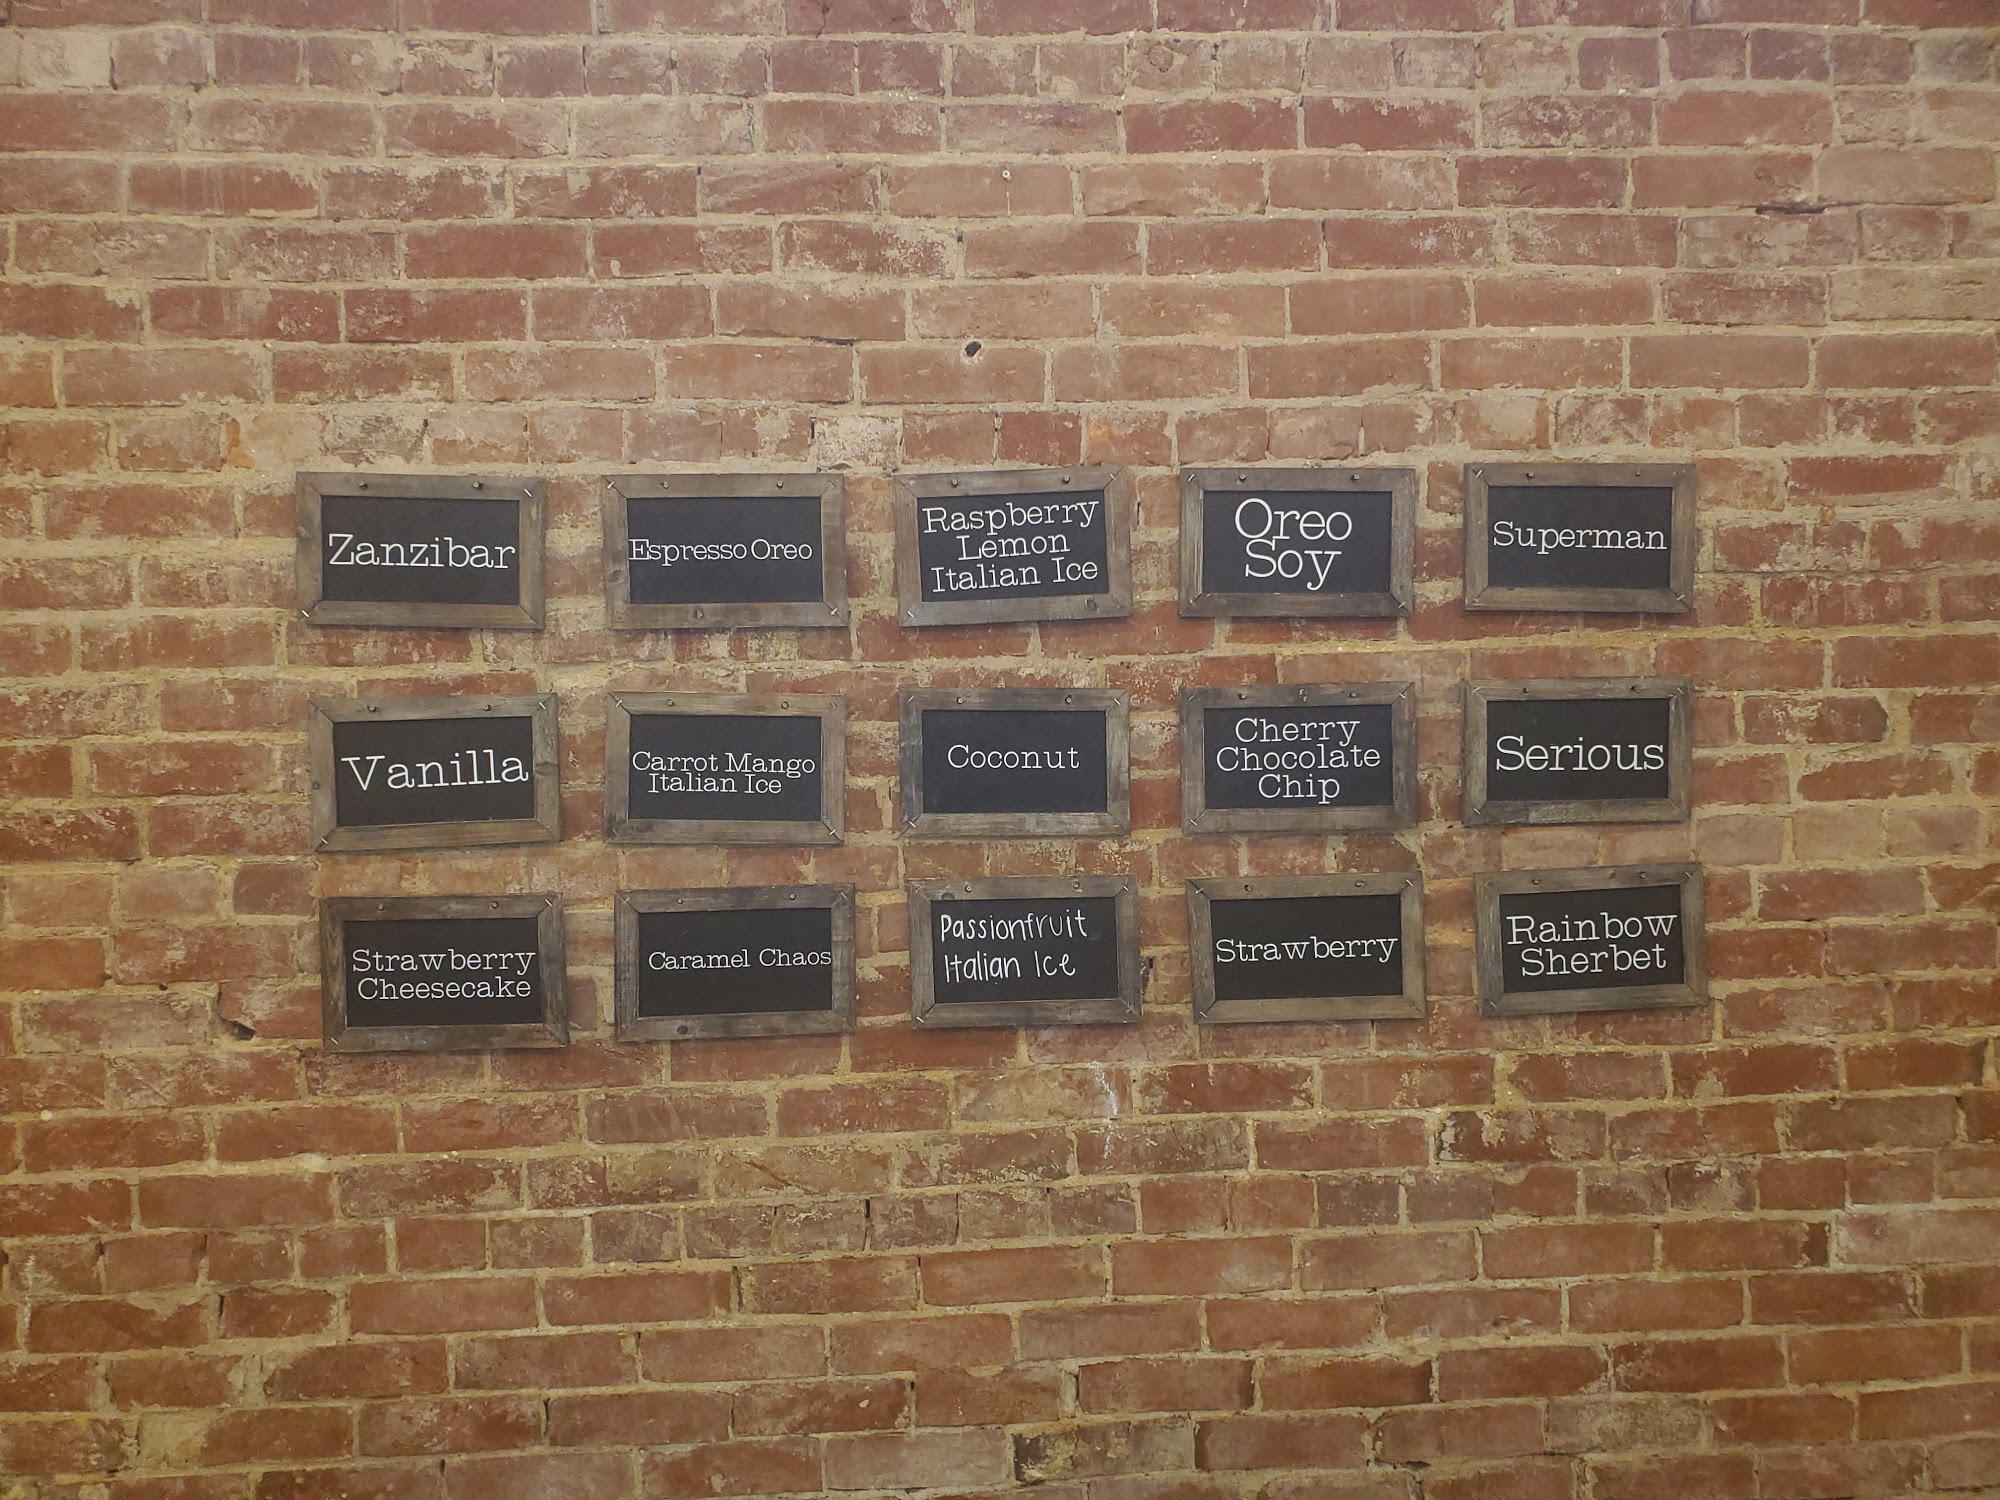 Zanzibar
Espresso Oreo
Raspberry
Lemon
Italian Ice
Oreo
Soy
Superman
Vanilla
Carrot Mango
Italian Ice
Coconut
Cherry
Chocolate
Chip
Serious
Strawberry
Cheesecake
Caramel Chaos
Passionfruit
Italian Ice
Strawberry
Rainbow
Sherbet